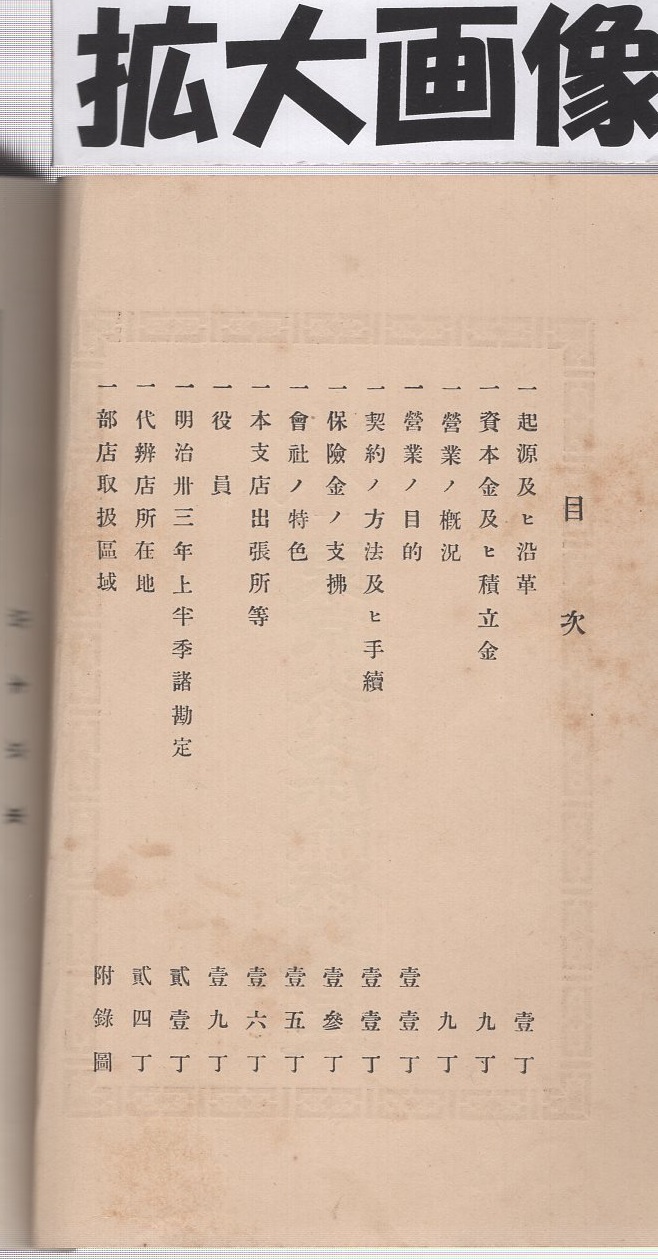 拡大画像
目次
一起源及ヒ沿革 壹丁
一資本金及ヒ積立金 九丁
一營業ノ槪況 九丁
一營業ノ目的 壹壹丁
一契約ノ方法及ヒ手續 壹壹丁
一保險金ノ支拂 壹參丁
一會社ノ特色 壹五丁
一本支店出張所等 壹六丁
一役員 壹九丁
一明治卅三年上半季諸勘定 貳壹丁
一代辨店所在地 貳四丁
一部店取扱區域 附錄圖